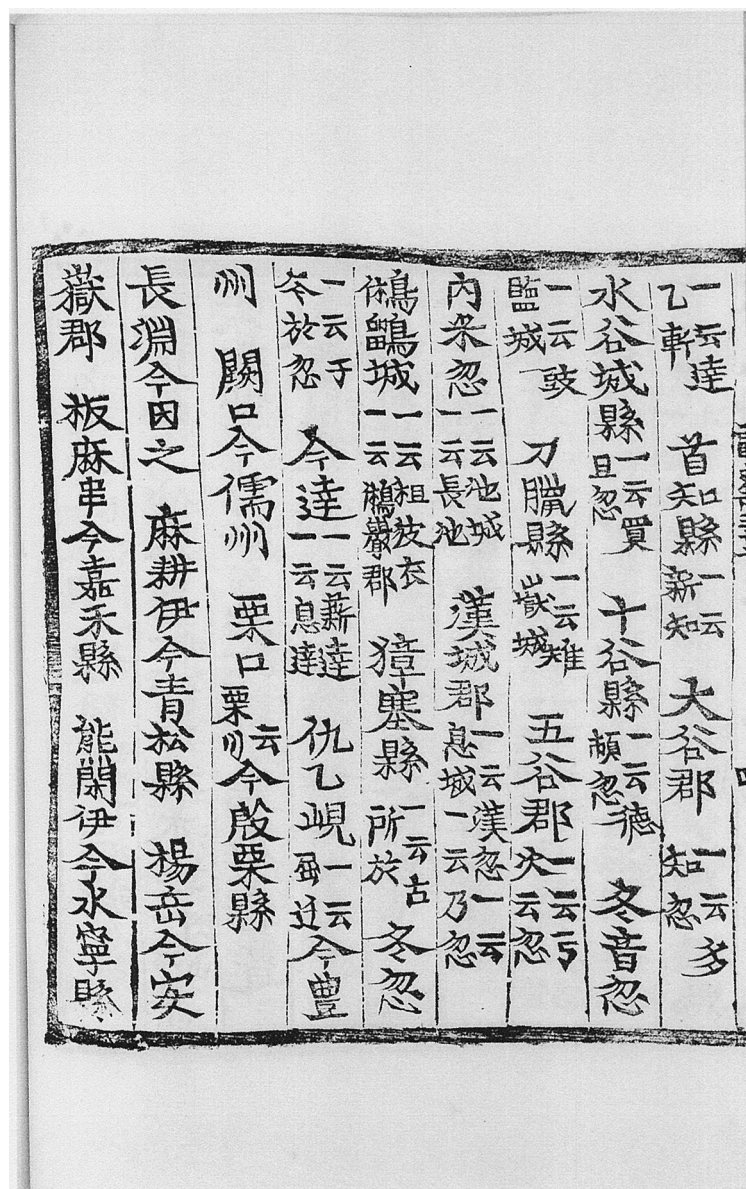 一云達乙斬 首知縣一云新知 大谷郡一云多知忽
水谷城縣一云買旦忽 十谷縣一云德頓忽 冬音忽
一云豉鹽城 刀臘縣一云雉嶽城 五谷郡一云亐次云忽
內米忽一云池城一云長池 漢城郡一云漢忽一云息城一云乃忽
鵂鶹城一云租波衣一云鵂巖郡 獐塞縣一云古所於 冬忽
一云于冬於忽 今達一云薪達一云息達 仇乙峴一云屈迁今豊
州 闕口今儒州 栗口云栗川今殷栗縣
長淵今因之 麻耕伊今青松縣 楊岳今安
嶽郡 板麻串今嘉禾縣 熊閑伊今水寧縣